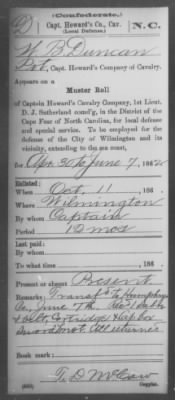 (Confederate.)
D Capt. Howard's Co., Cav. N. C.
(Local Defense.)
W B Duncan
Pvt, Capt. Howard's Company of Cavalry.
Appears on a
Muster Roll
of Captain Howard's Cavalry Company, 1st Lieut.
D. J. Sutherland com'd'g, in the District of the
Cape Fear of North Carolina, for local defense
and special service. To be employed for the
defense of the City of Wilmington and its
vicinity, extending to the sea coast,
for Apr 30 to June 7, 186
Enlisted:
When Oct. 11, 186 .
Where Wilmington
By whom Captain
Period 12 mos
Last paid:
By whom
To what time , 186 .
Present or absent Present
Remarks: Transf'd to
Co, June 7th
& belt, Cartridge & Cap box

Book mark:
Copyist.